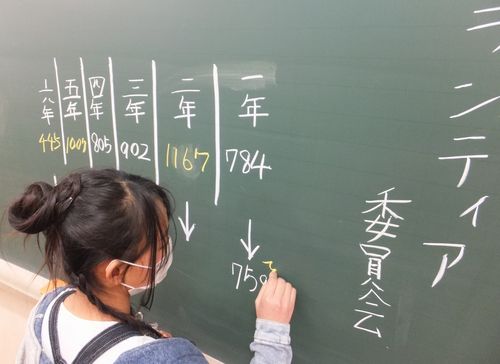 ランティア
委員会
一年
784
↓
750
二年
1167
↓
三年
902
四年
805
五年
1007
六年
445